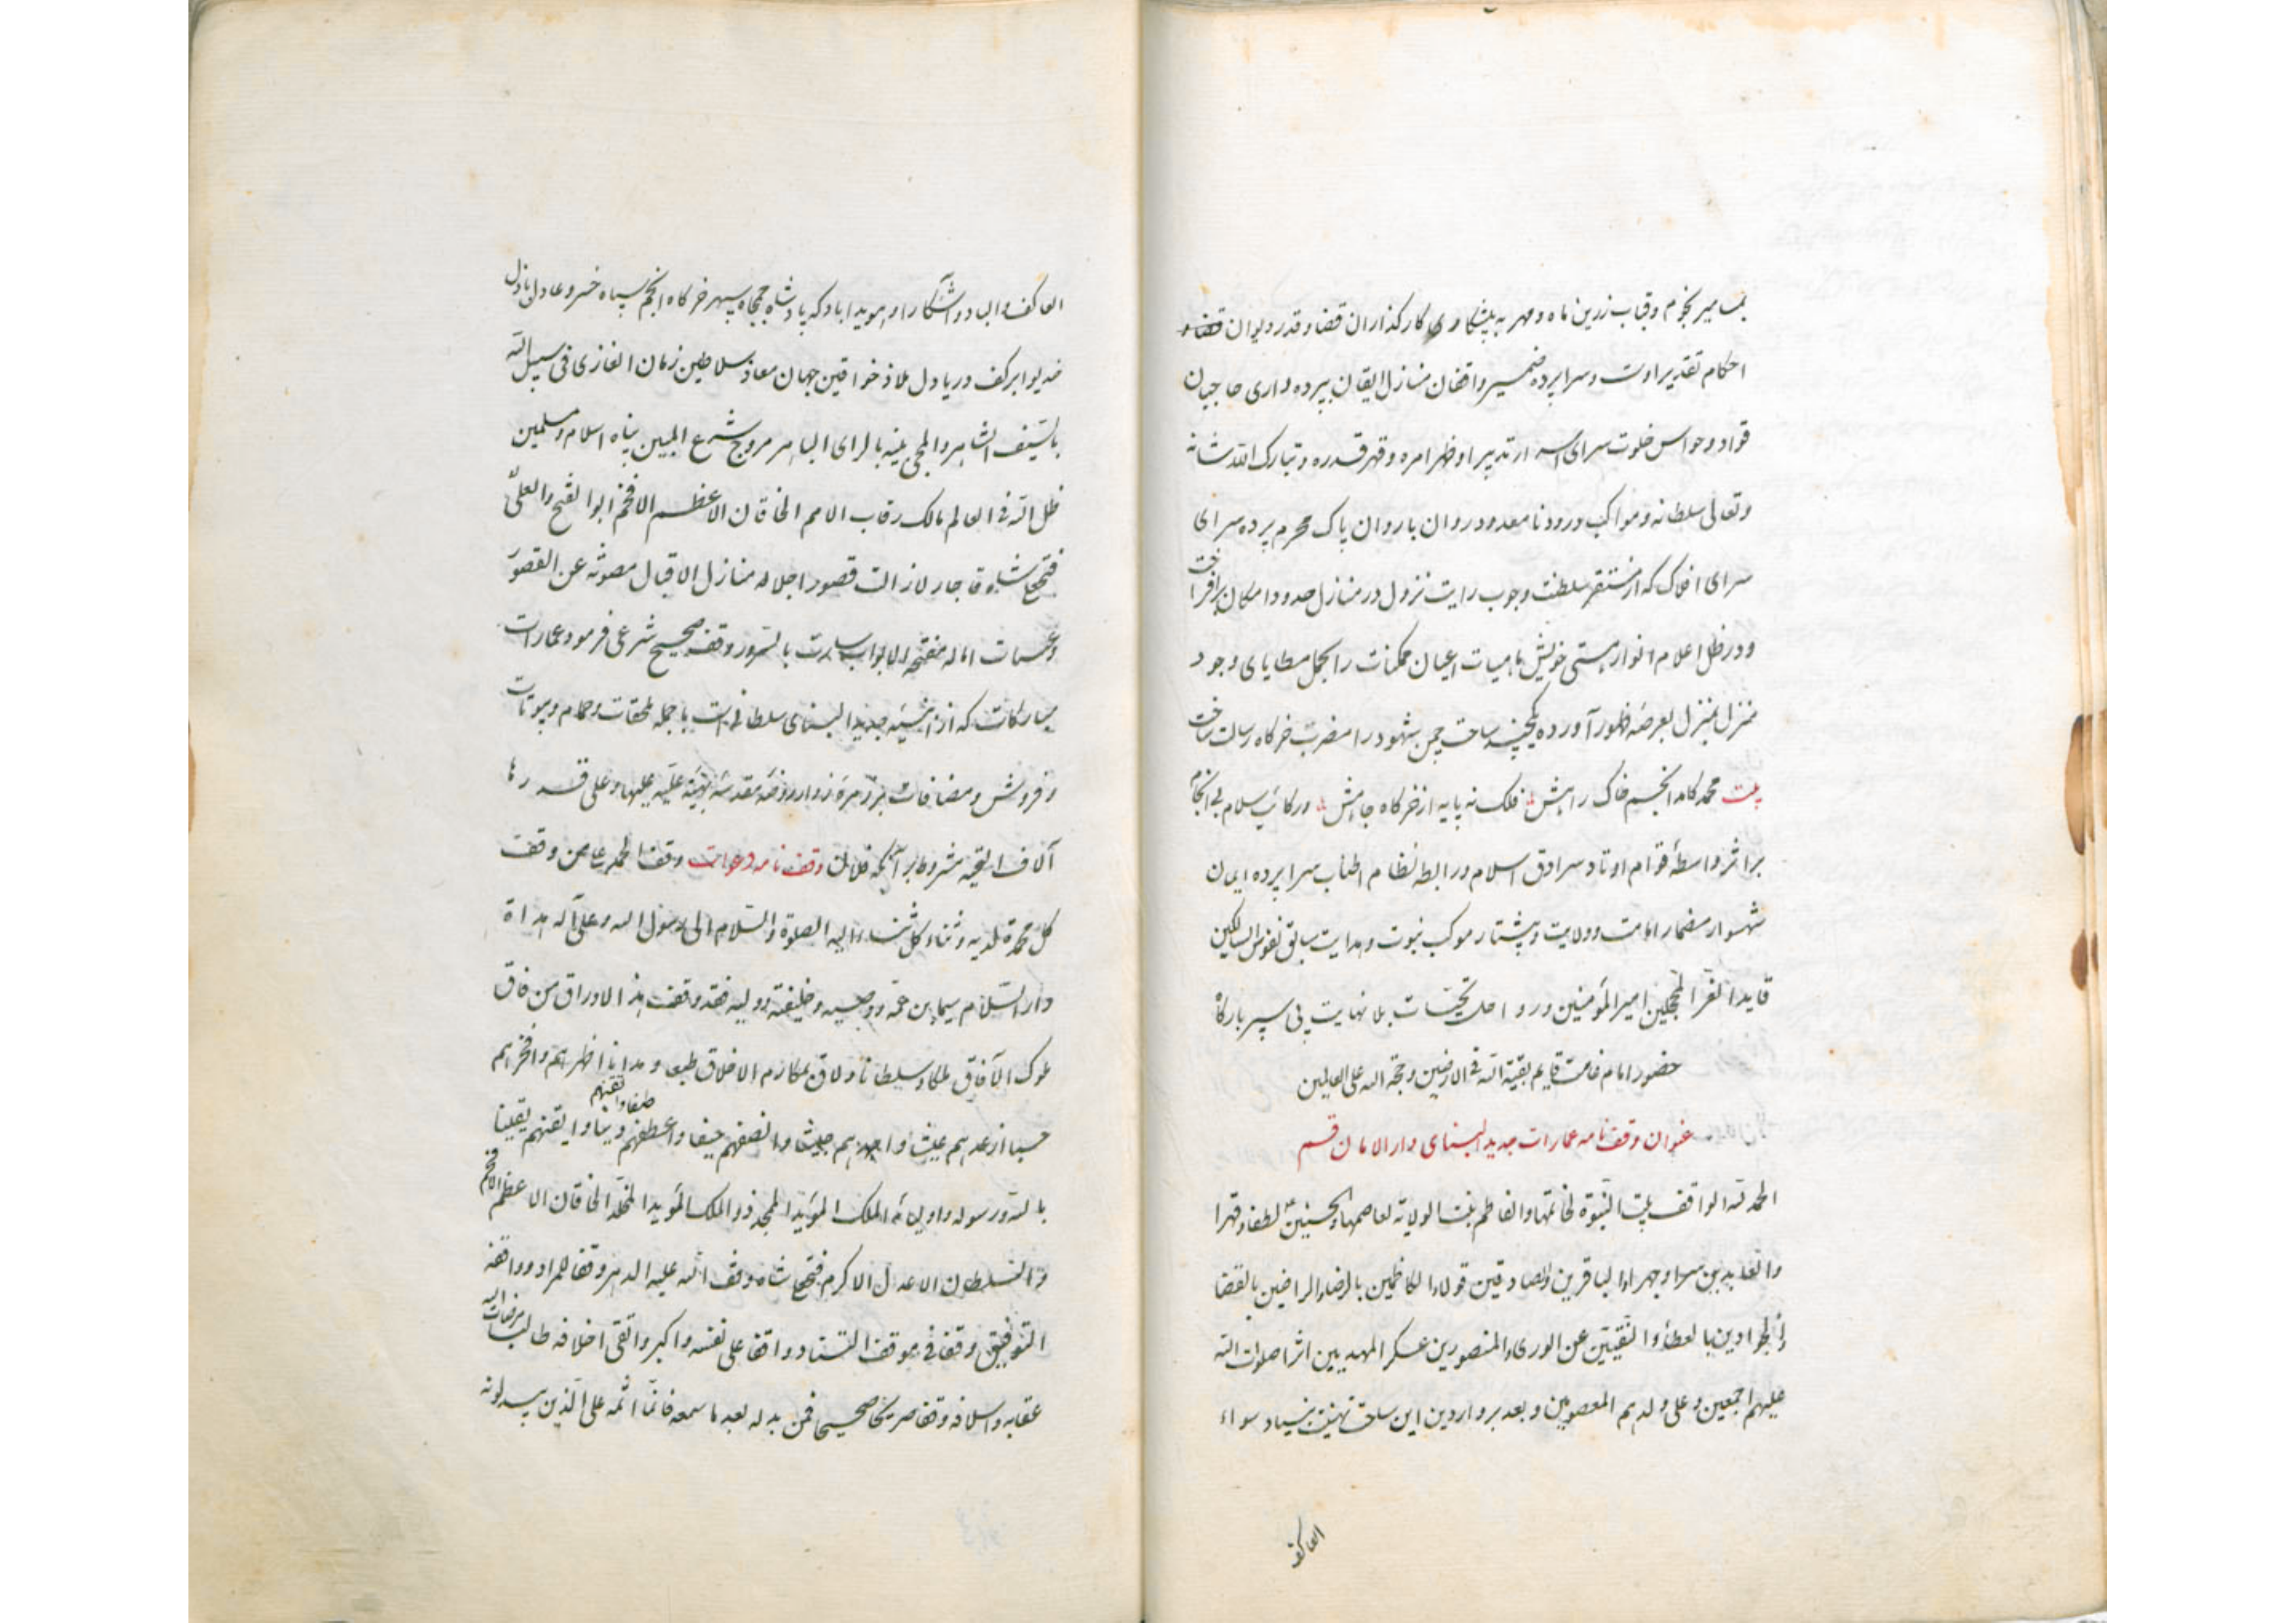 بمسامیر نجوم و قباب زرین ماه و مهر به پیشکاری کارگذاران قضا و قدر دیوان قضاء
احکام تقدیر اوست و سراپرده ضمیر واقفان منازل ایقان بپرده داری حاجبان
قواد و حواس خلوت سرای اسرار تدبیر او ظهر امره و قهر قدره و تبارک الله شانه
و تعالی سلطانه و مواکب درود نامعدود روان با روان پاک محرم پرده سرای
سرای افلاک که از مستقر سلطنت وجوب رایت نزول در منازل حدود امکان برافراخت
و در ظل اعلام انوار هستی خویش ماهیات اعیان ممکنات را بحمل مطایای وجود
منزل بمنزل بعرصه ظهور آورده ساحت چمن شهود را مضرب خرگاه رسالت ساخت
بیت محمد کامد انجم خاک راهش فلک نه پایه از خرگاه جاهش و رکائب سلام بی انجام
بر اثر واسطه قوام اوتاد سرادق اسلام و رابطه نظام اطناب سراپرده ایمان
شهسوار مضمار امامت و ولایت و پیشتار موکب نبوت و هدایت سایق نفوس السالکین
قاید الغر المحجلین امیرالمؤمنین و رواحل تحیات بلا نهایت پی سپر بارگاه
حضور امام قایم بقیة الله فی الارضین و حجة الله علی العالمین
عنوان وقف نامه عمارات جدید البنای دار الامان قم
الحمد لله الواقف بیت النبوة لخاتمها والفاطم بنت الولایة لعاصمها والحسنین لطفا و قهرا
والعابدین سرا و جهرا والباقرین والصادقین قولا والکاظمین بالرضا والراضین بالقضا
والجوادین بالعطاء والنقیین عن الوری والمنصورین عسکر المهدیین اثرا صلوات الله
علیهم اجمعین و علی ولدهم المعصومین و بعد بر واردین این ساحت بنیاد سواء
العاکف
العاکف و الباد آشکارا و هویدا باد که پادشاه جمجاه سپهر خرگاه انجم سپاه خسرو عادل باذل
خدیو ابر کف دریادل ملاذ خواقین جهان معاذ سلاطین زمان الغازی فی سبیل الله
بالسیف الشاهر والمحیی دینه بالرای الباهر مروج شرع المبین پناه اسلام و مسلمین
ظل الله فی العالم مالک رقاب الامم الخاقان الاعظم الافخم ابوالفتح والعلی
فتحعلیشاه قاجار لازالت قصور اجلاله منازل الاقبال مصونة عن القصور
و عرصات اماله مفتحة الابواب بالسرور وقف صحیح شرعی فرمود عمارات
مبارکات که از ابنیه جدید البنای سلطانی است با جمله ملحقات و حمام و بیوتات
و فروش و مضافات بر زمره زوار روضه مقدسه علیه علیها و علی
آلاف التحیه مشروط بر آنکه فلان وقف نامه دعوات وقف الحمد عا من وقف
کل محمدة لدیه و ثناء کل ثناء الیه الصلوة والسلام الی رسول الله و علی آله هداة
دار السلام سیما بن عمه و وصیه و خلیفته و ولیه فقد وقف هذا الاوراق من فاق
ملوک الآفاق ملکا و سلطانا و لاق لمکارم الاخلاق طبعا و اظهرهم و افخرهم
حسبا ارغدهم عیشا و جیشا و انصفهم حیفا و اعطفهم ضیفا و اتقنهم دینا و ایقنهم یقینا
بالله و رسوله و اولیائه الملک المؤید الممجد ذو الملک المؤبد المخلد الخاقان الاعظم الافخم
والسلطان الاعدل الاکرم فتحعلی شاه وقف الله علیه الدهر وقفا للمراد و واقفه
التوفیق وقفا فی موقف التناد واقفا علی نفسه و اکبر و اتقی اخلافه طالبا لمرضات الله
عقابه و اسلافه وقفا صریحا صحیحا فمن بدله بعد ما سمعه فانما اثمه علی الذین یبدلونه